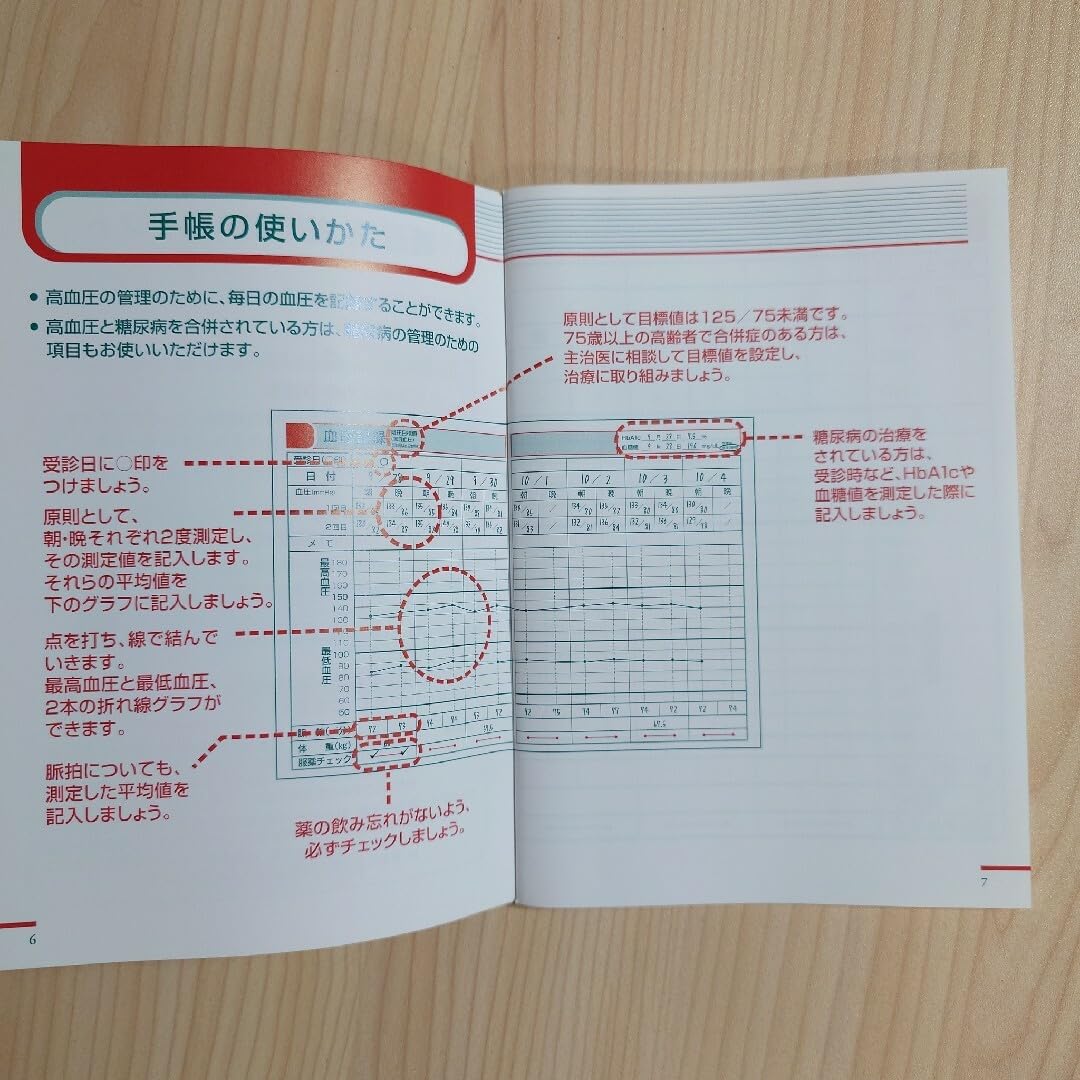 手帳の使いかた
• 高血圧の管理のために、毎日の血圧を記録することができます。
• 高血圧と糖尿病を合併されている方は、糖尿病の管理のための
項目もお使いいただけます。
原則として目標値は125／75未満です。
75歳以上の高齢者で合併症のある方は、
主治医に相談して目標値を設定し、
治療に取り組みましょう。
受診日に○印を
つけましょう。
原則として、
朝・晩それぞれ2度測定し、
その測定値を記入します。
それらの平均値を
下のグラフに記入しましょう。
点を打ち、線で結んで
いきます。
最高血圧と最低血圧、
2本の折れ線グラフが
できます。
脈拍についても、
測定した平均値を
記入しましょう。
薬の飲み忘れがないよう、
必ずチェックしましょう。
糖尿病の治療を
されている方は、
受診時など、HbA1cや
血糖値を測定した際に
記入しましょう。
HbA1c
血糖値
受診日(○印)
日付 9/29 9/30 10/1 10/2 10/3 10/4
血圧(mmHg) 朝 晩 朝 晩 朝 晩 朝 晩 朝 晩 朝 晩 朝 晩
1回目
2回目
メモ
最高血圧
180
170
160
150
140
130
最低血圧
100
90
80
70
60
50
72 73 74 74 73 72 72 75 74 77 74 72 72 74
体 重(kg) 67.5
服薬チェック
6
7